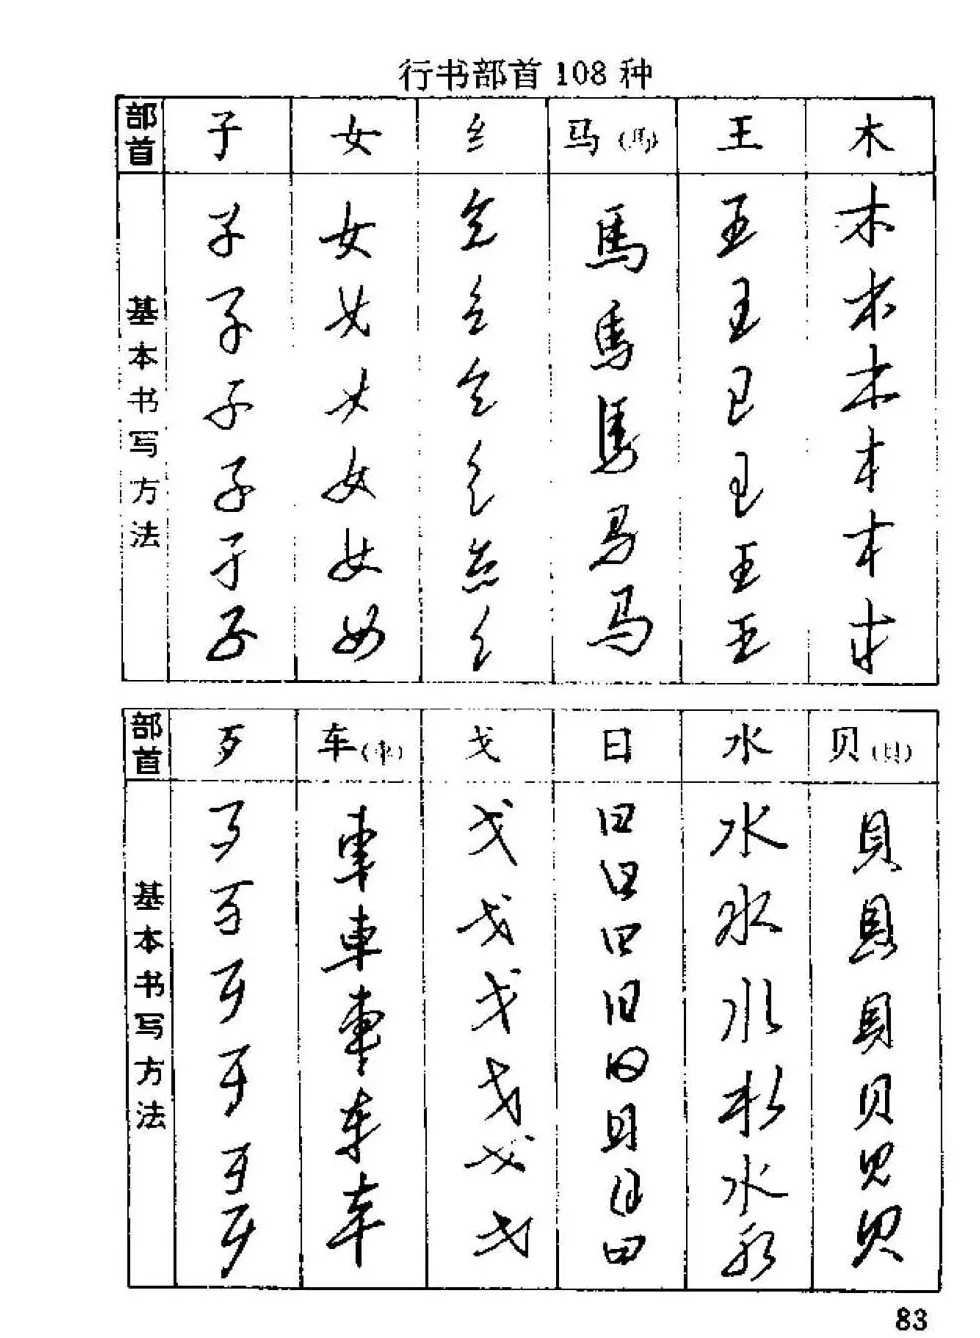 行书部首108种
部首 子 女 纟 马(馬) 王 木
基本书写方法
子 女 纟 馬 王 木
子 女 纟 馬 王 木
子 女 纟 馬 王 木
子 女 纟 马 王 木
子 女 纟 马 王 木
子 女 纟 王 木
部首 歹 车(車) 戈 日 水 贝(貝)
基本书写方法
歹 車 戈 日 水 貝
歹 車 戈 日 水 貝
歹 車 戈 日 水 貝
歹 车 戈 日 水 贝
歹 车 戈 日 水 贝
歹 戈 日 水 贝
日
日
83